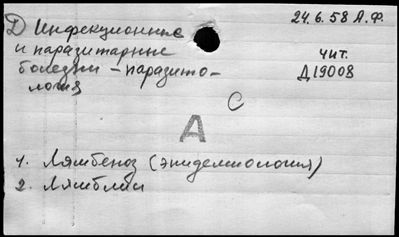 Д Инфекционные
и паразитарные
болезни – паразито-
логия
24.6.58 А.Ф.
чит.
Д19008
С
А
1. Лямблиоз (эпидемиология)
2. Лямблии